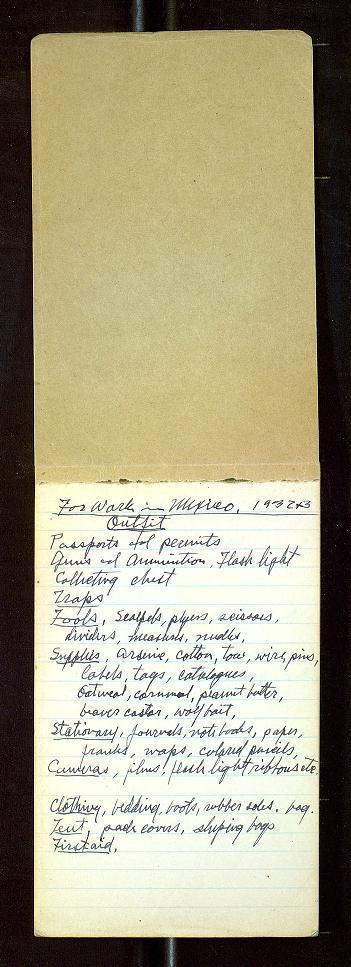 For Work in Mexico, 1932+3
Outfit
Passports and permits
Guns and Ammunition, Flash light
Collecting chest
Traps
Tools, Scalpels, plyers, scissors,
dividers, measures, needles,
Supplies, arsenic, cotton, tow, wire, pins,
labels, tags, catalogues,
Oatmeal, cornmeal, peanut butter,
beaver castor, wolf bait,
Stationary, journals, note books, paper,
franks, maps, colored pencils,
Cameras, films, flash light ribbons etc.
Clothing, bedding, boots, rubber soles, bag.
Tent, pack covers, sleping bags
First aid,